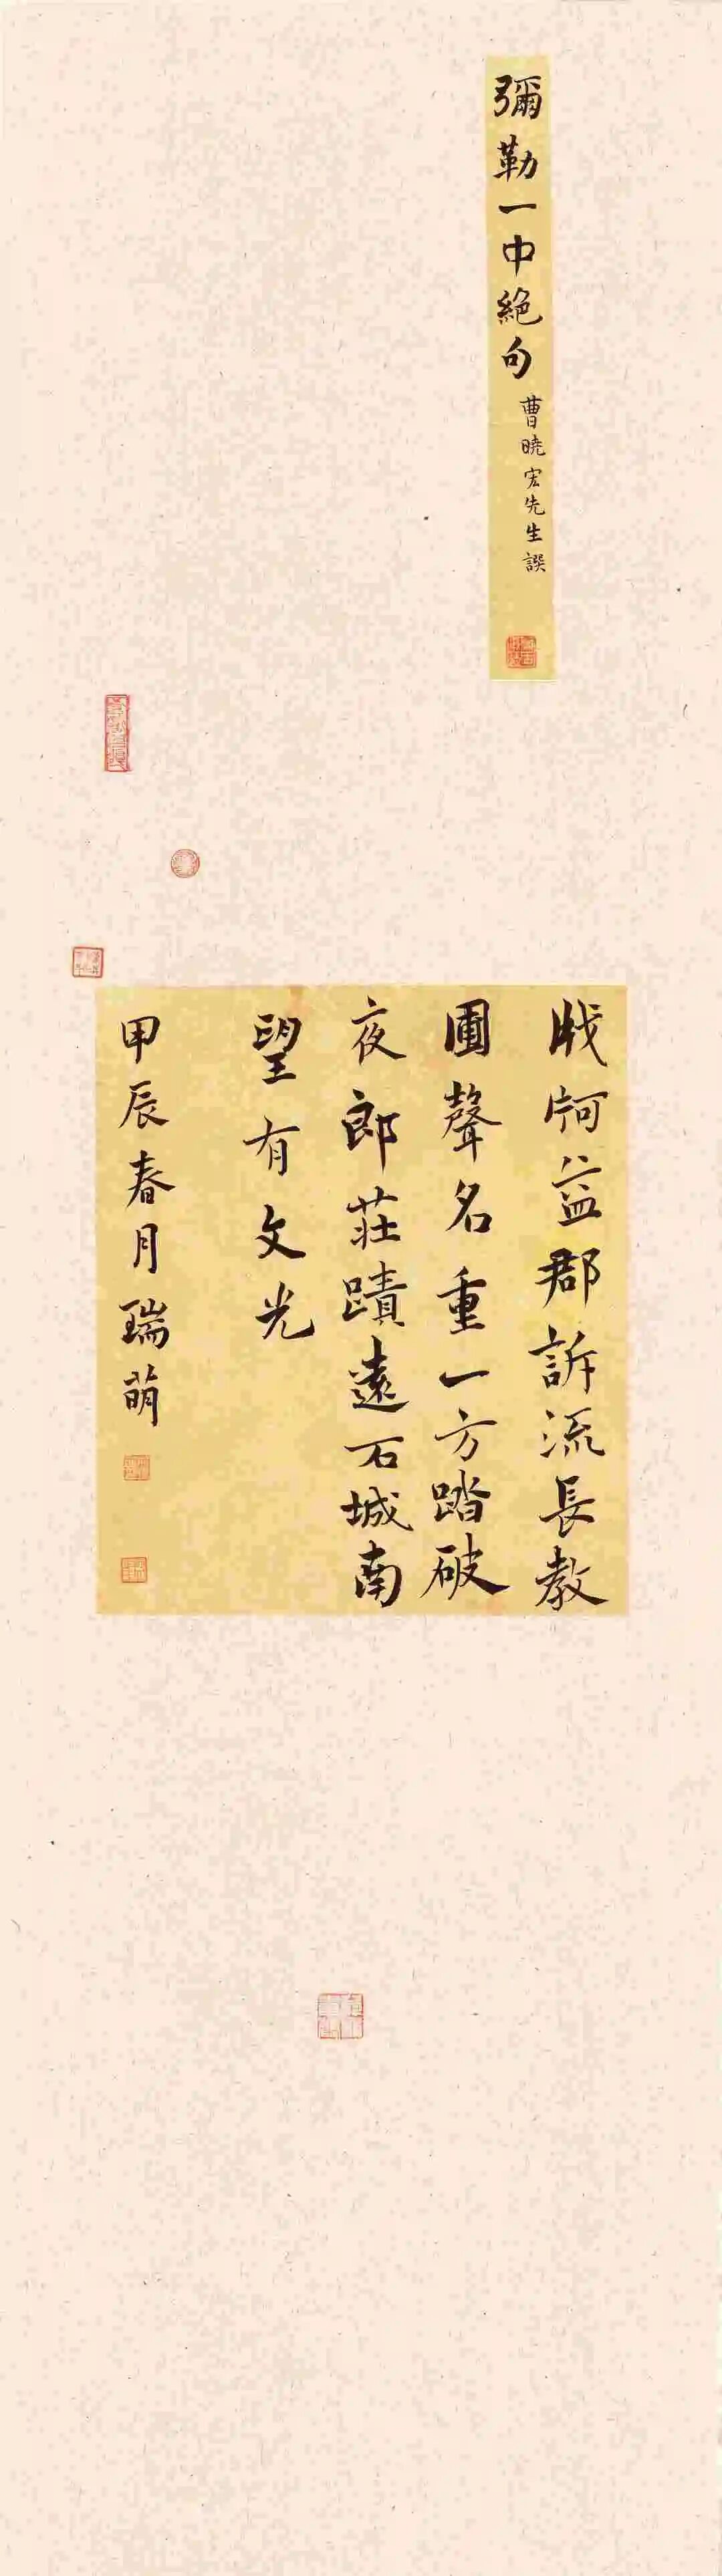 彌勒一中絕句
曹曉宏先生譔
牂牁益郡訴流長教
圃聲名重一方踏破
夜郎莊蹟遠石城南
望有文光
甲辰春月瑞萌